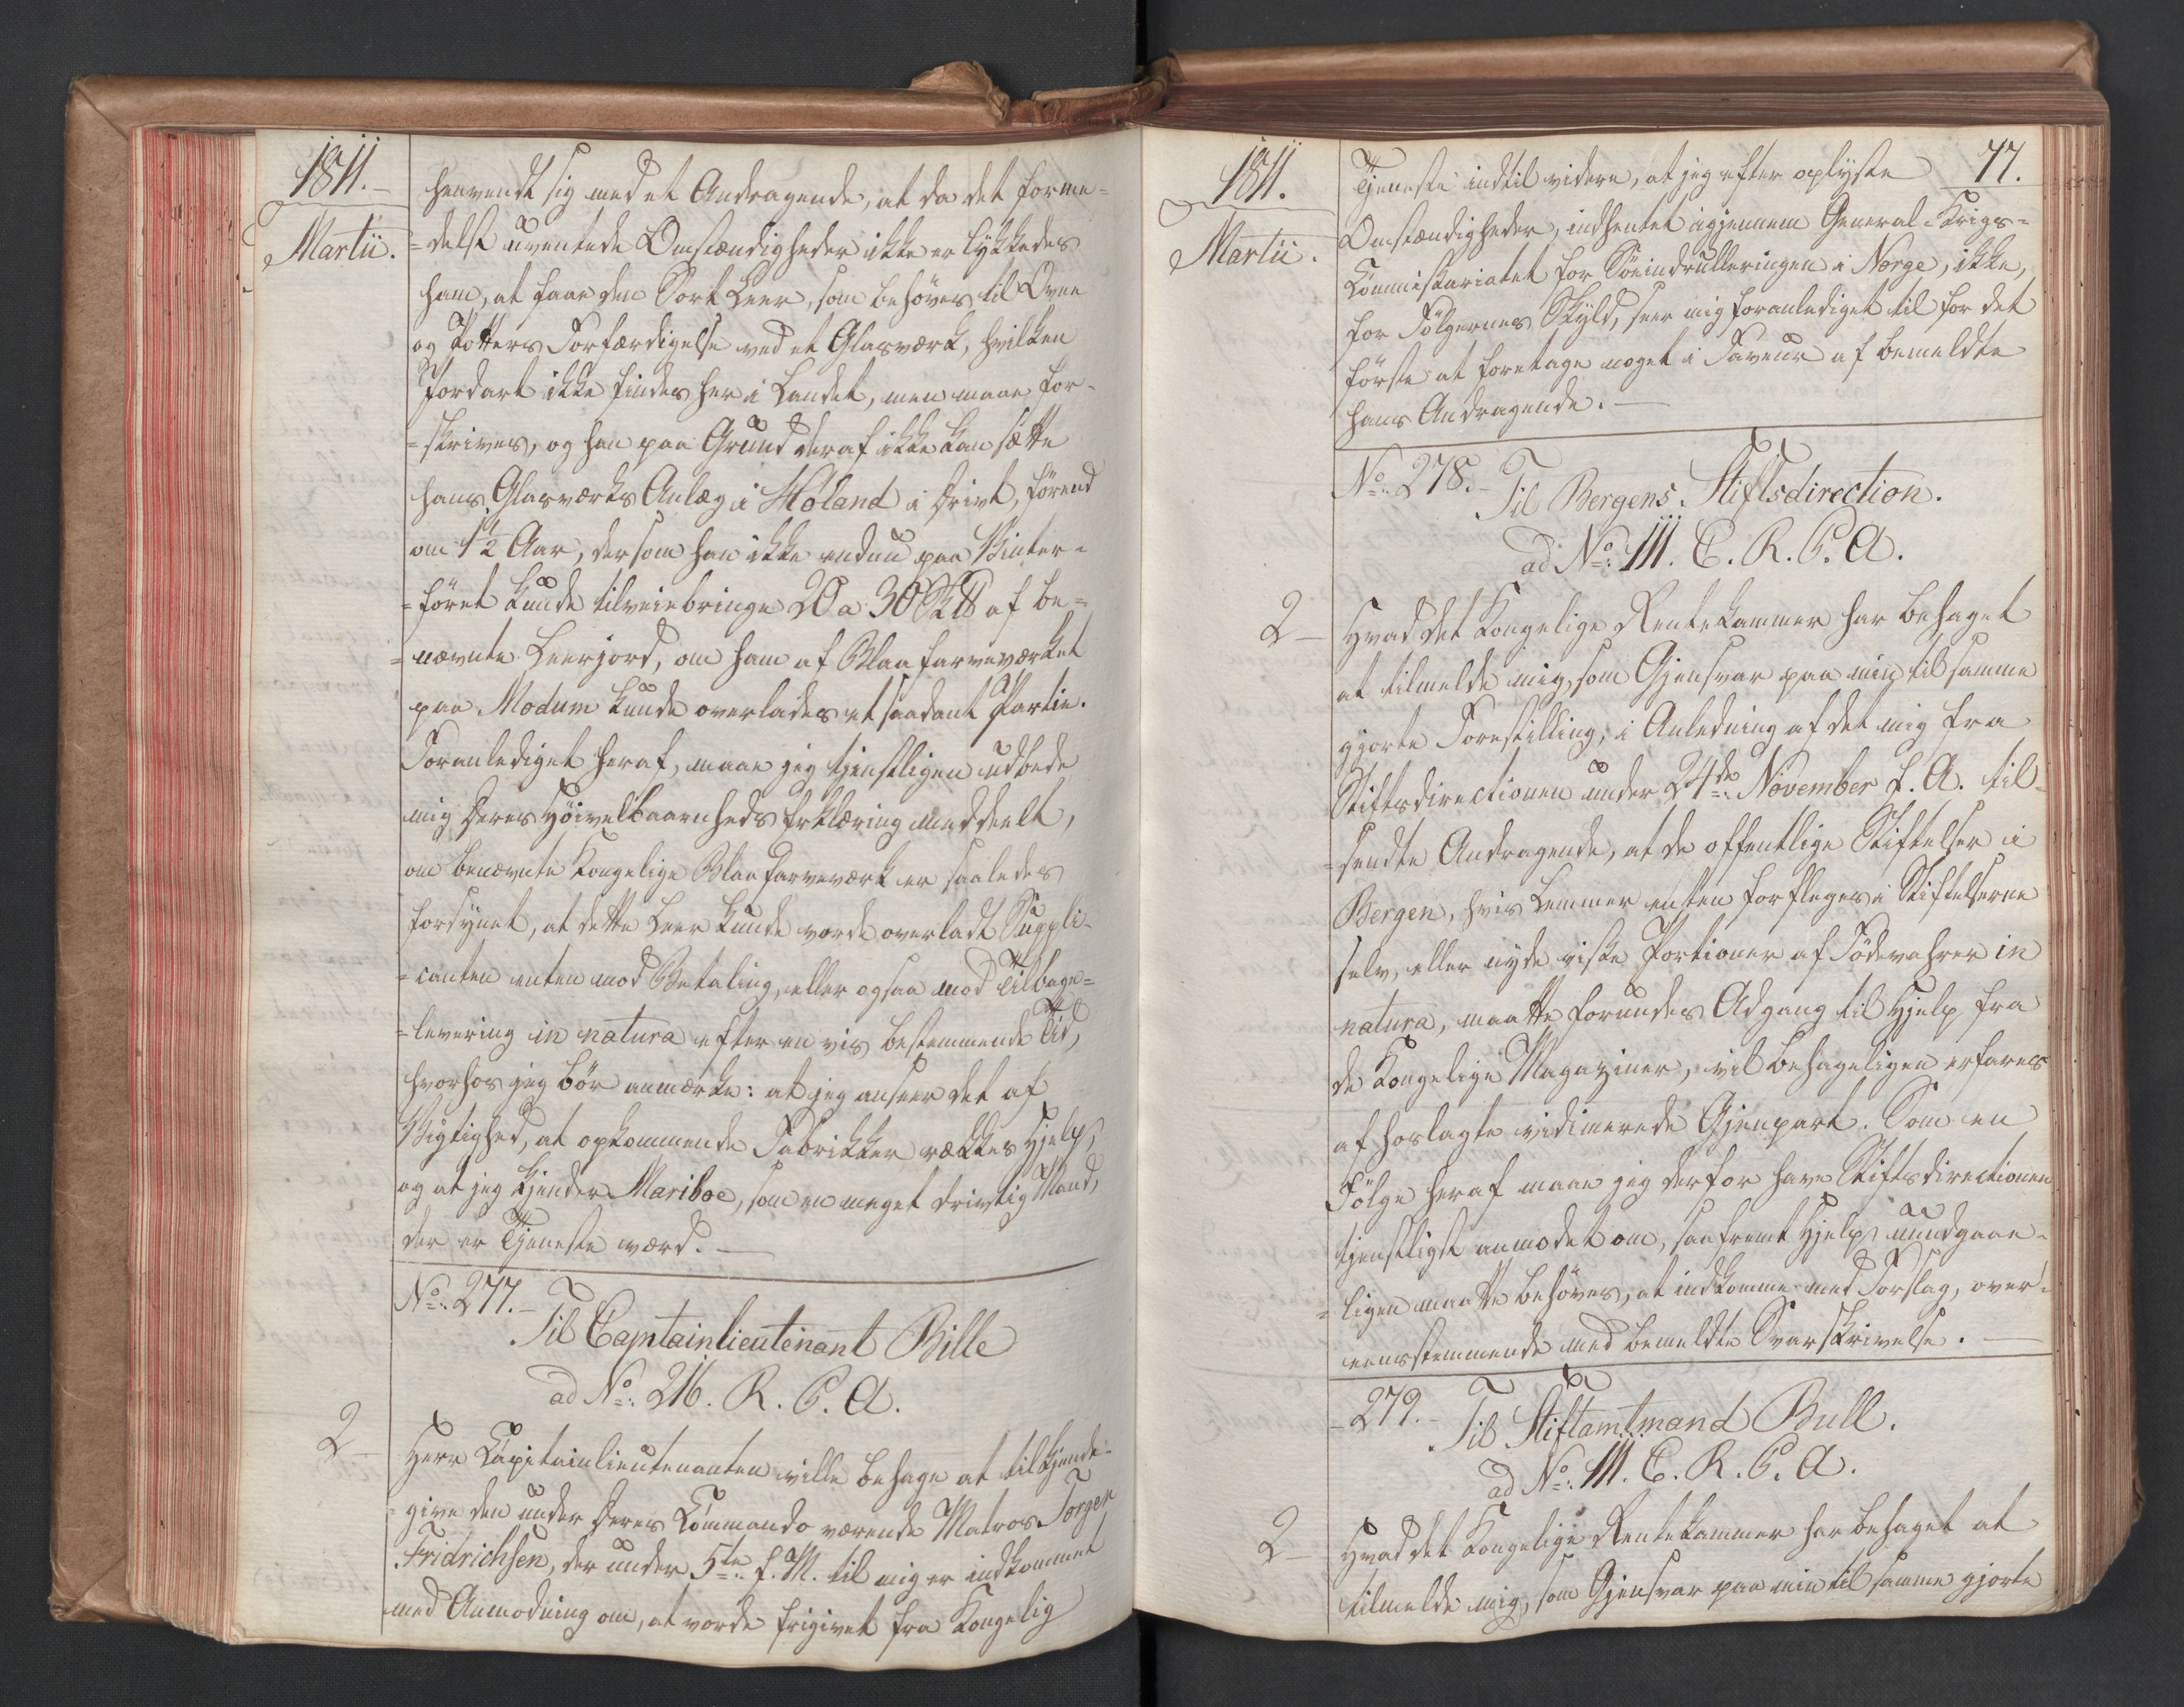 1811.
Martii.
henvendt sig med et Andragende, at da det forme-
-delst uventede Omstændigheder ikke er lykkedes
ham, at faae den Sort Leer, som behøves til Ovne
og Potters Forfærdigelse ved et Glasværk, hvilken
Jordart ikke findes her i Landet, men maae for-
-skrives, og han paa Grund deraf ikke kan sætte
hans Glasværks Anlæg i Høland i Drivt, førend
om 1½ Aar, dersom han ikke endnu paa Vinter-
-føret kunde tilveiebringe 20 a 30 Sk℔ af be-
-nævnte Leerjord, om ham af Blaafarveværket
paa Modum kunde overlades et saadant Partie.
Foranlediget heraf, maae jeg tjenstligen udbede
mig Deres Høivelbaarnheds Erklæring meddeelt,
om benævnte Kongelige Blaafarveværk er saaledes
forsynet, at dette Leer kunde vorde overladt Suppli-
-canten enten mod Betaling, eller ogsaa mod Tilbage-
-levering in natura efter en vis bestemmende Tid,
hvorhos jeg bør anmærke: at jeg ansaae det af
Vigtighed, at opkommende Fabrikker rækkes Hjelp,
og at jeg kjender Mariboe, som en meget drivtig Mand,
der er Tjeneste værd. —
No. 277. –
Til Captainlieutenant Bille
ad No. 216. R. P. A.
2 –
Herr Capitainlieutenanten ville behage at tilkjende-
-give den under Deres Commando værende Matros Torger
Fridrichsen, der under 5te f. M. til mig er indkommet
med Anmodning om, at vorde frigivet fra Kongelig
1811.
Martii.
77.
Tjeneste indtil videre, at jeg efter oplyste
Omstændigheder, indhentet igjennem General-Krigs-
Commissariatet for Søeindrulleringen i Norge, ikke,
for Følgernes Skyld, seer mig foranlediget til for det
første at foretage noget i Faveur af bemeldte
hans Andragende. —
No. 278. –
Til Bergens Stiftsdirection.
ad No. 111. C. R. P. A.
2 –
Hvad det Kongelige Rentekammer har behaget
at tilmelde mig, som Gjensvar paa min til samme
gjorte Forestilling, i Anledning af det mig fra
Stiftsdirectionen under 24de November f. A. til-
-sendte Andragende, at de offentlige Stiftelser i
Bergen, hvis Lemmer enten forpleges i Stiftelserne
selv, eller nyde visse Portioner af Fødevahrer in
natura, maatte forundes Adgang til Hjelp fra
de Kongelige Magaziner, vil behageligen erfares
af hoslagte vidimerede Gjenpart. Som en
Følge heraf maae jeg derfor have Stiftsdirectionen
tjenstligst anmodet om, saafremt Hjelp uundgaae-
-ligen maatte behøves, at indkomme med Forslag, over-
eensstemmende med bemeldte Svarskrivelse. —
– 279. –
Til Stiftamtmand Bull.
ad No. 111. C. R. P. A.
2 –
Hvad det Kongelige Rentekammer har behaget at
tilmelde mig, som Gjensvar paa min til samme gjorte